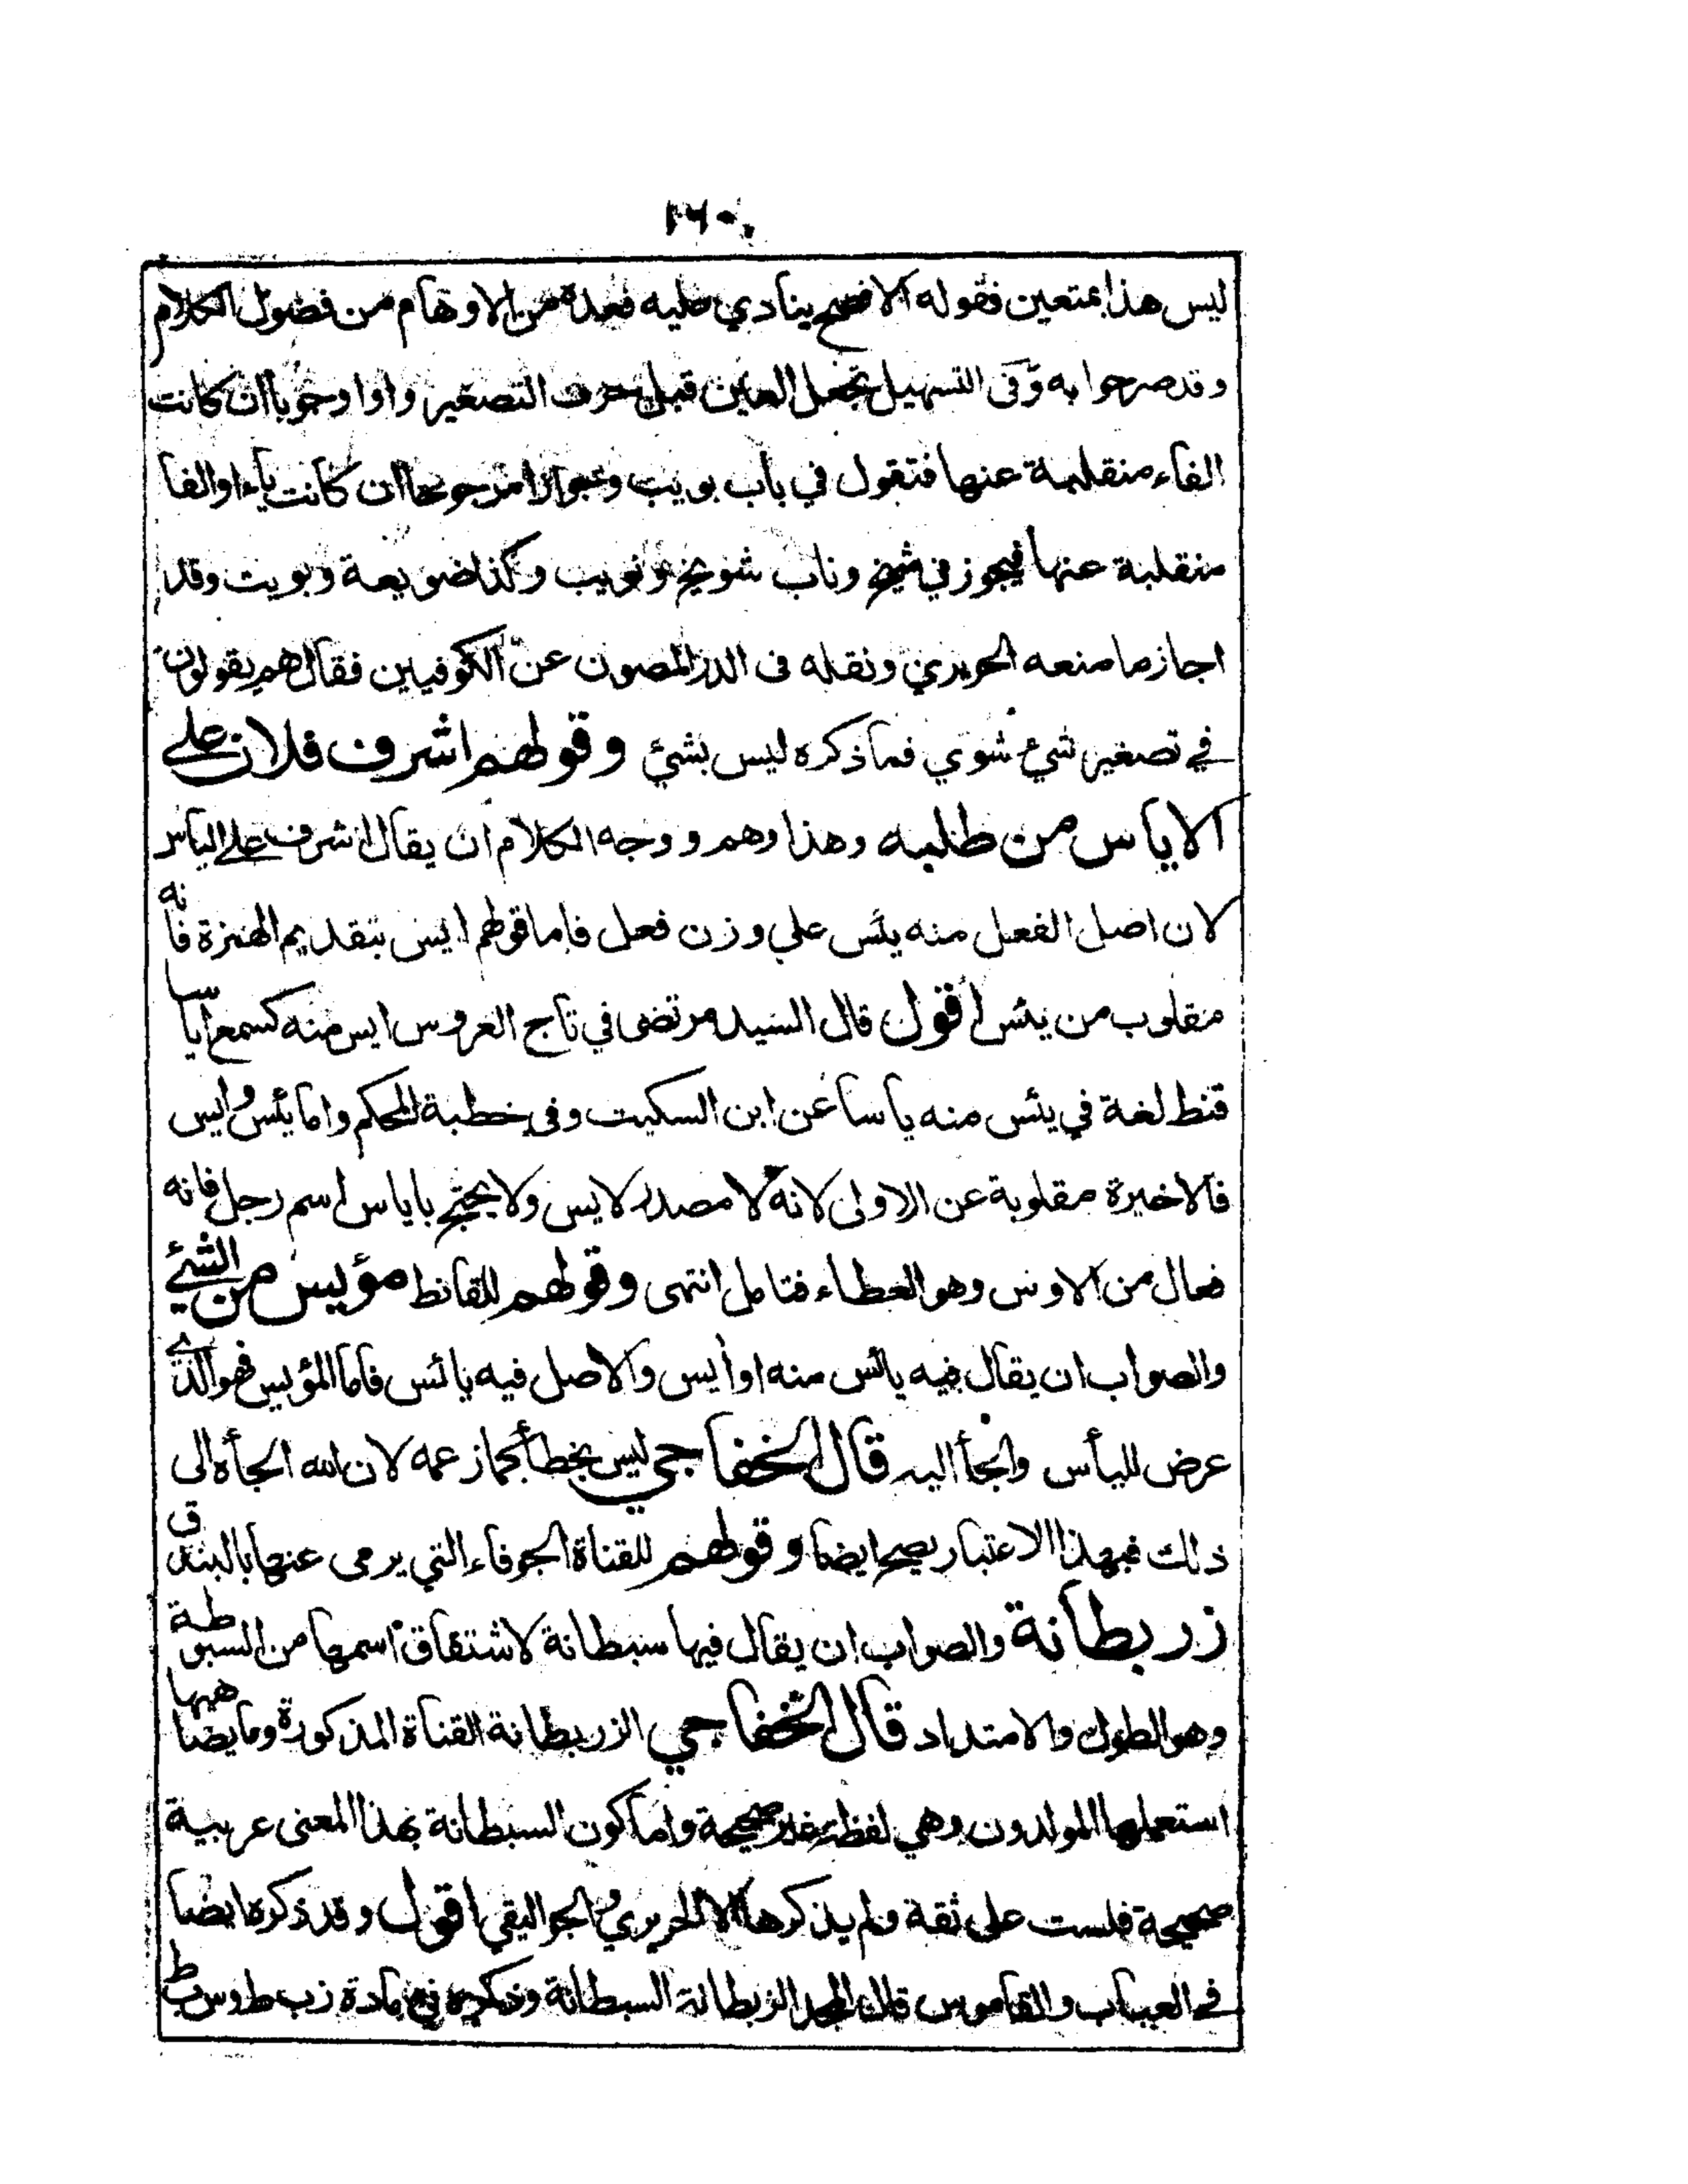 ١٦٠
ليس هذا بمتعين فقوله الافصح ينادي عليه فعده من الاوهام من فضول الكلام
وقد صرحوا به وفى التسهيل تجعل العين قبل حرف التصغير واوا وجوبا ان كانت
الفاء منقلبة عنها فتقول في باب بويب وجوازا مرجوحا ان كانت ياء او الفا
منقلبة عنها فيجوز في شيخ وناب شويخ ونويب وكذا ضويعة وبويت وقد
اجاز ما منعه الحريري ونقله فى الدر المصون عن الكوفيين فقال هم يقولون
في تصغير شئ شوي فما ذكره ليس بشئ وقولهم اشرف فلان على
الاياس من طلبه وهذا وهم ووجه الكلام ان يقال اشرف على الياس
لان اصل الفعل منه يئس على وزن فعل فاما قولهم ايس بتقديم الهمزة فانه
مقلوب من يئس اقول قال السيد مرتضى في تاج العروس ايس منه كسمع اياسا
قنط لغة في يئس منه ياسا عن ابن السكيت وفى خطبة المحكم واما يئس وايس
فالاخيرة مقلوبة عن الاولى لانه لا مصدر لايس ولا يحتج باياس اسم رجل فانه
فعال من الاوس وهو العطاء فتامل انتهى وقولهم للقانط مؤيس من الشئ
والصواب ان يقال فيه يائس منه او أيس والاصل فيه يائس فاما المؤيس فهو الذي
عرض لليأس والجأ اليه قال الخفاجي ليس بخطأ كما زعمه لان الله الجأه الى
ذلك فبهذا الاعتبار يصح ايضا وقولهم للقناة الجوفاء التي يرمى عنها بالبندق
زربطانة والصواب ان يقال فيها سبطانة لاشتقاق اسمها من السبوطة
وهو الطول والامتداد قال الخفاجي الزربطانة القناة المذكورة وما يضاهيها
استعملها المولدون وهي لفظة غير صحيحة واما كون السبطانة بهذا المعنى عربية
صحيحة فلست على ثقة ولم يذكرها الا الحريري والجواليقي اقول وقد ذكره ايضا
في العباب والقاموس قال المجد الزبطانة السبطانة وذكره في مادة زب ط وس ب ط